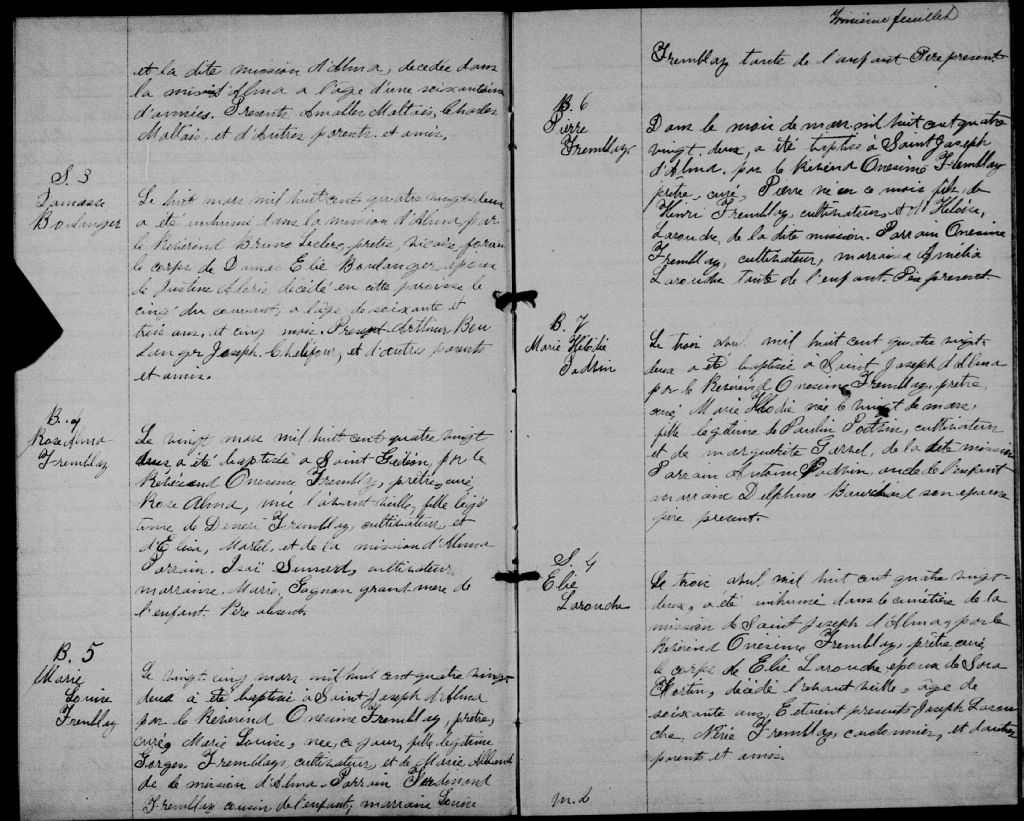 et la dite mission d'Alma, decedée dans
la mission d'Alma a l'age d'une soixantaine
d'années. Presents Maltais, Charles
Maltais, et d'Autres parents et amis.
S. 3
Damasse
Boulanger
Le huit mars mil huit cent quatre vingt deux
a été inhumé dans la mission d'Alma, par
le Révérend Bruno Leclerc, pretre, vicaire forain
le corps de Damas Elie Boulanger, epoux
de Justine decédé en cette paroisse le
cinq du courant, a l'age de soixante et
trois ans, et cinq mois. Present Arthur Bou
langer Joseph. et d'autres parents
et amis.
B. 4
Rose Alma
Tremblay
Le vingt mars mil huit cent quatre vingt
deux a été baptisée a Saint Gédéon, par le
Révérend Onesime Tremblay, prêtre, curé,
Rose Alma, née l'avant veille, fille légi
time de Tremblay, cultivateur, et
d'Elisa, Martel, et de la mission d'Alma
Parrain. Isaï Simard, cultivateur,
marraine. Marie, Gagnon grand-mere de
l'enfant. Pere absent.
B. 5
Marie
Louise
Tremblay
Le vingt cinq mars mil huit cent quatre vingt
deux a été baptisée à Saint Joseph d'Alma
par le Révérend Onesime Tremblay, pretre,
curé, Marie Louise, nee, ce jour, fille legitime
Gorges. Tremblay, cultivateur, et de Marie,
de la mission d'Alma. Parrain Ferdinand
Tremblay cousin de l'enfant, marraine Louise
Troisième feuillet
Tremblay tante de l'enfant Père present
B. 6
Pierre
Tremblay
Dans le mois de mars mil huit cent quatre
vingt. deux, a été baptisé à Saint Joseph
d'Alma. par le Révérend Onesime Tremblay
prêtre, curé, Pierre né en ce mois fils de
Henri Tremblay, cultivateur, et Héloise,
Larouche, de la dite mission. Parrain Onesime
Tremblay, cultivateur, marraine Amélia
Larouche tante de l'enfant. Père present
B. 7
Marie
Potvin
Le trois avril mil huit cent quatre vingt-
deux a été baptisée à Saint Joseph d'Alma
par le Révérend Onesime Tremblay, prêtre,
curé, Marie née le vingt de mars,
fille légitime de Paulin Potvin, cultivateur
et de marguérite de la dite mission
Parrain Antoine Potvin, oncle de l'enfant
marraine Delphine Bouchard son epouse
père present.
S. 4
Elie
Larouche
Le trois avril mil huit cent quatre vingt-
deux, a été inhumé dans le cimetière de la
mission de Saint Joseph d'Alma, par le
Révérend Onésime Tremblay, prêtre, curé,
le corps de Elie Larouche epoux de Sara
Fortin, décédé l'avant veille, âge de
soixante ans, Etaient presents Joseph Larou
che, Nérée Tremblay, et d'autres
parents et amis.
m. L